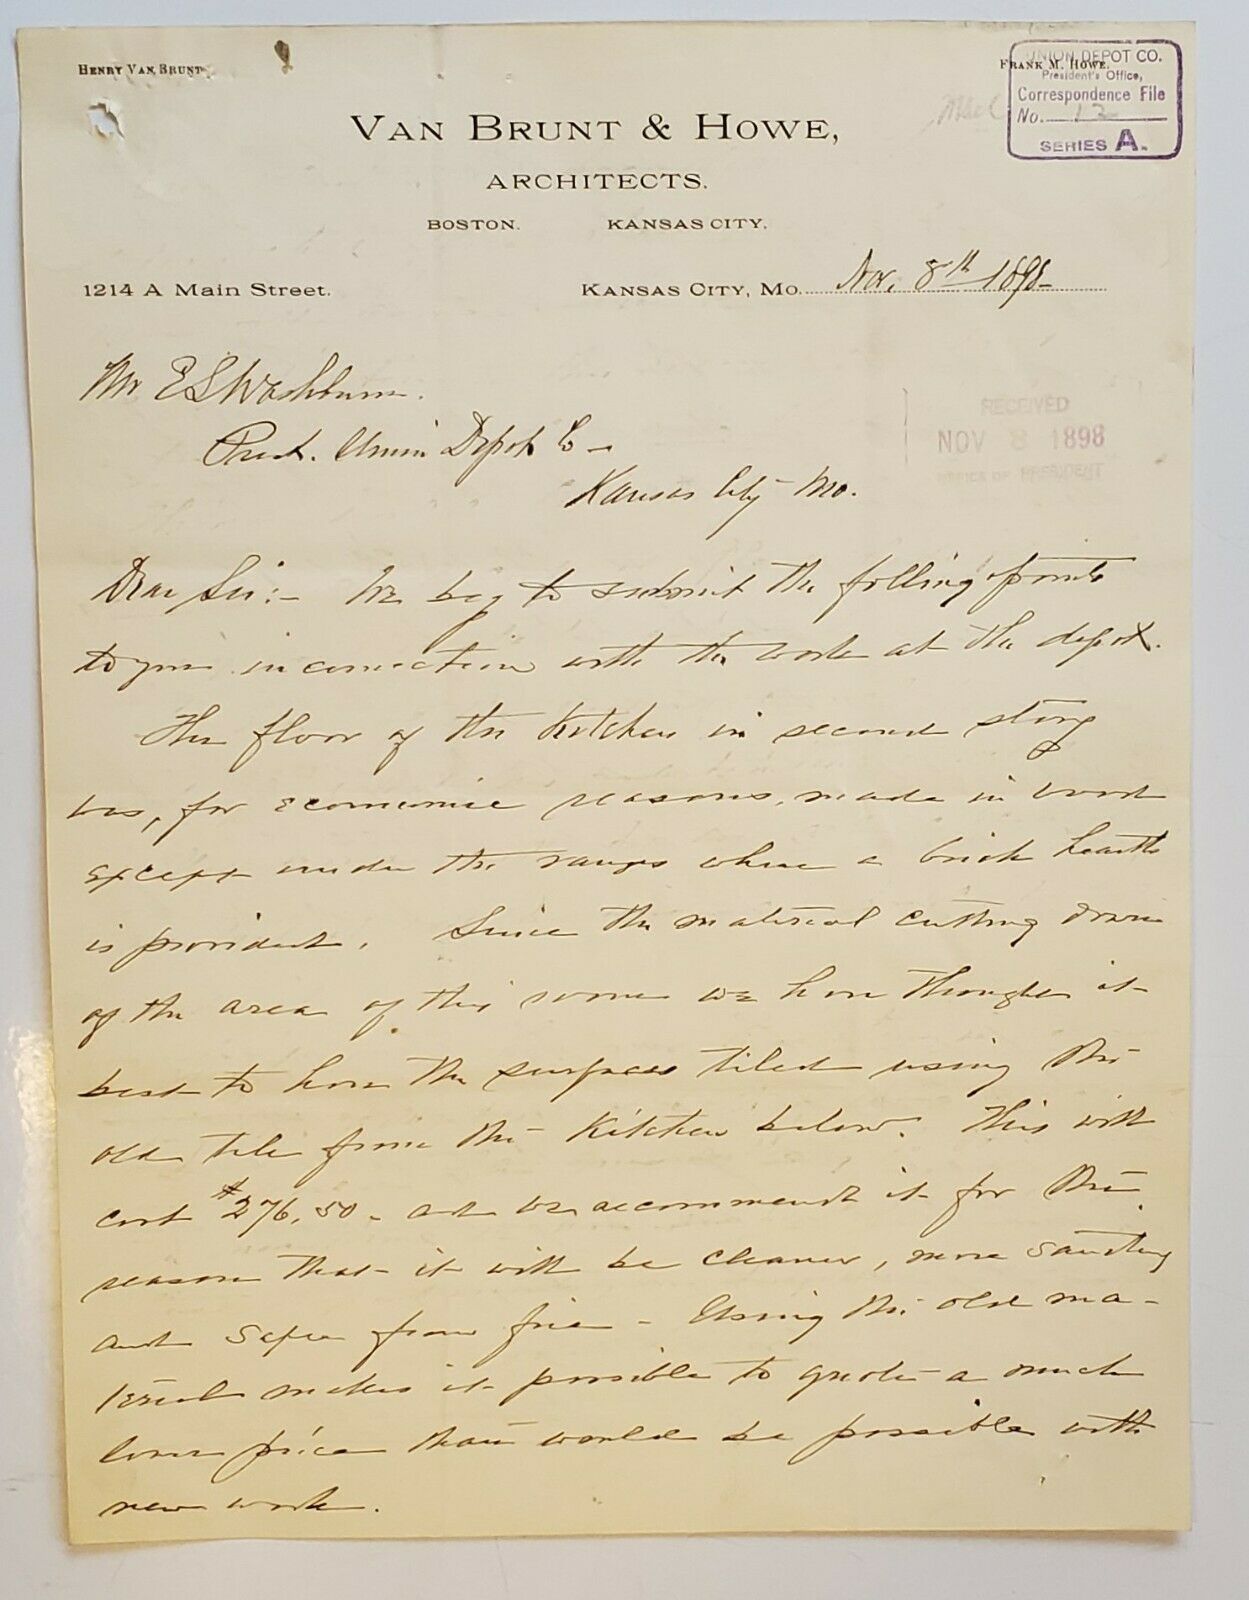 Henry Van Brunt.
Frank M. Howe.
UNION DEPOT CO.
President's Office,
Correspondence File
No. 12
SERIES A.
VAN BRUNT & HOWE,
ARCHITECTS.
BOSTON. KANSAS CITY.
1214 A Main Street. KANSAS CITY, MO. Nov. 8th 1898
Mr E L Washburn.
Prest. Union Depot Co -
Kansas City Mo.
RECEIVED
NOV 8 1898
OFFICE OF PRESIDENT
Dear Sir:- We beg to submit the folling points
to you in connection with the work at the depot.
The floor of the Kitchen in second story
was, for economic reasons, made in wood
except under the ranges where a brick hearth
is provided. Since the material cutting down
of the area of this room we have thought it
best to have the surfaces tiled using the
old tile from the Kitchen below. This will
cost $276.50 - and we reccommend it for the
reason that it will be cleaner, more sanitary
and safer from fire - Using the old ma-
terial makes it possible to quote a much
lower price than would be possible with
new work.